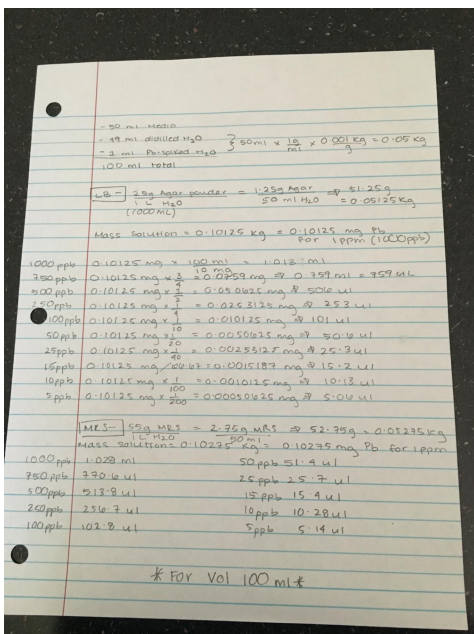 - 50 ml Media
- 49 ml distilled H₂O } 50ml × 1g/ml × 0.001 kg/g = 0.05 kg
- 1 ml Pb-spiked H₂O
100 ml total
LB - 25g Agar powder / 1 L H₂O (1000 ML) = 1.25g Agar / 50 ml H₂O ⇒ 51.25g = 0.05125 kg
Mass Solution = 0.10125 kg = 0.10125 mg Pb for 1 ppm (1000 ppb)
1000 ppb 0.10125 mg × 100 ml / 10 mg = 1.013 ml
750 ppb 0.10125 mg × 3/4 = 0.0759 mg ⇒ 0.759 ml = 759 uL
500 ppb 0.10125 mg × 1/2 = 0.050625 mg ⇒ 506 ul
250 ppb 0.10125 mg × 1/4 = 0.0253125 mg ⇒ 253 ul
100 ppb 0.10125 mg × 1/10 = 0.010125 mg ⇒ 101 ul
50 ppb 0.10125 mg × 1/20 = 0.0050625 mg ⇒ 50.6 ul
25 ppb 0.10125 mg × 1/40 = 0.00253125 mg ⇒ 25.3 ul
15 ppb 0.10125 mg / 66.67 = 0.0015187 mg ⇒ 15.2 ul
10 ppb 0.10125 mg × 1/100 = 0.0010125 mg ⇒ 10.13 ul
5 ppb 0.10125 mg × 1/200 = 0.00050625 mg ⇒ 5.06 ul
MRS - 55g MRS / 1 L H₂O = 2.75g MRS / 50 ml ⇒ 52.75g = 0.05275 kg
Mass solution = 0.10275 kg = 0.10275 mg Pb for 1ppm
1000 ppb 1.028 ml 50 ppb 51.4 ul
750 ppb 770.6 ul 25 ppb 25.7 ul
500 ppb 513.8 ul 15 ppb 15.4 ul
250 ppb 256.7 ul 10 ppb 10.28 ul
100 ppb 102.8 ul 5 ppb 5.14 ul
* For Vol 100 ml *